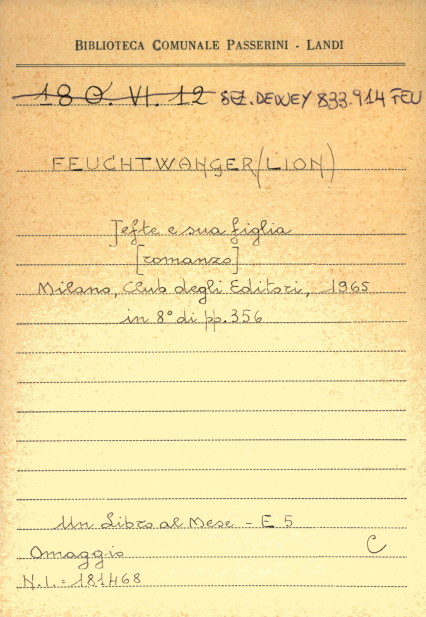 BIBLIOTECA COMUNALE PASSERINI - LANDI
18 O. VI. 12 SEZ. DEWEY 833.914 FEU
FEUCHTWANGER (LION)
Jefte e sua figlia
[romanzo]
Milano, Club degli Editori, 1965
in 8° di pp. 356
Un Libro al Mese - E 5
C
Omaggio
N.I.: 181468